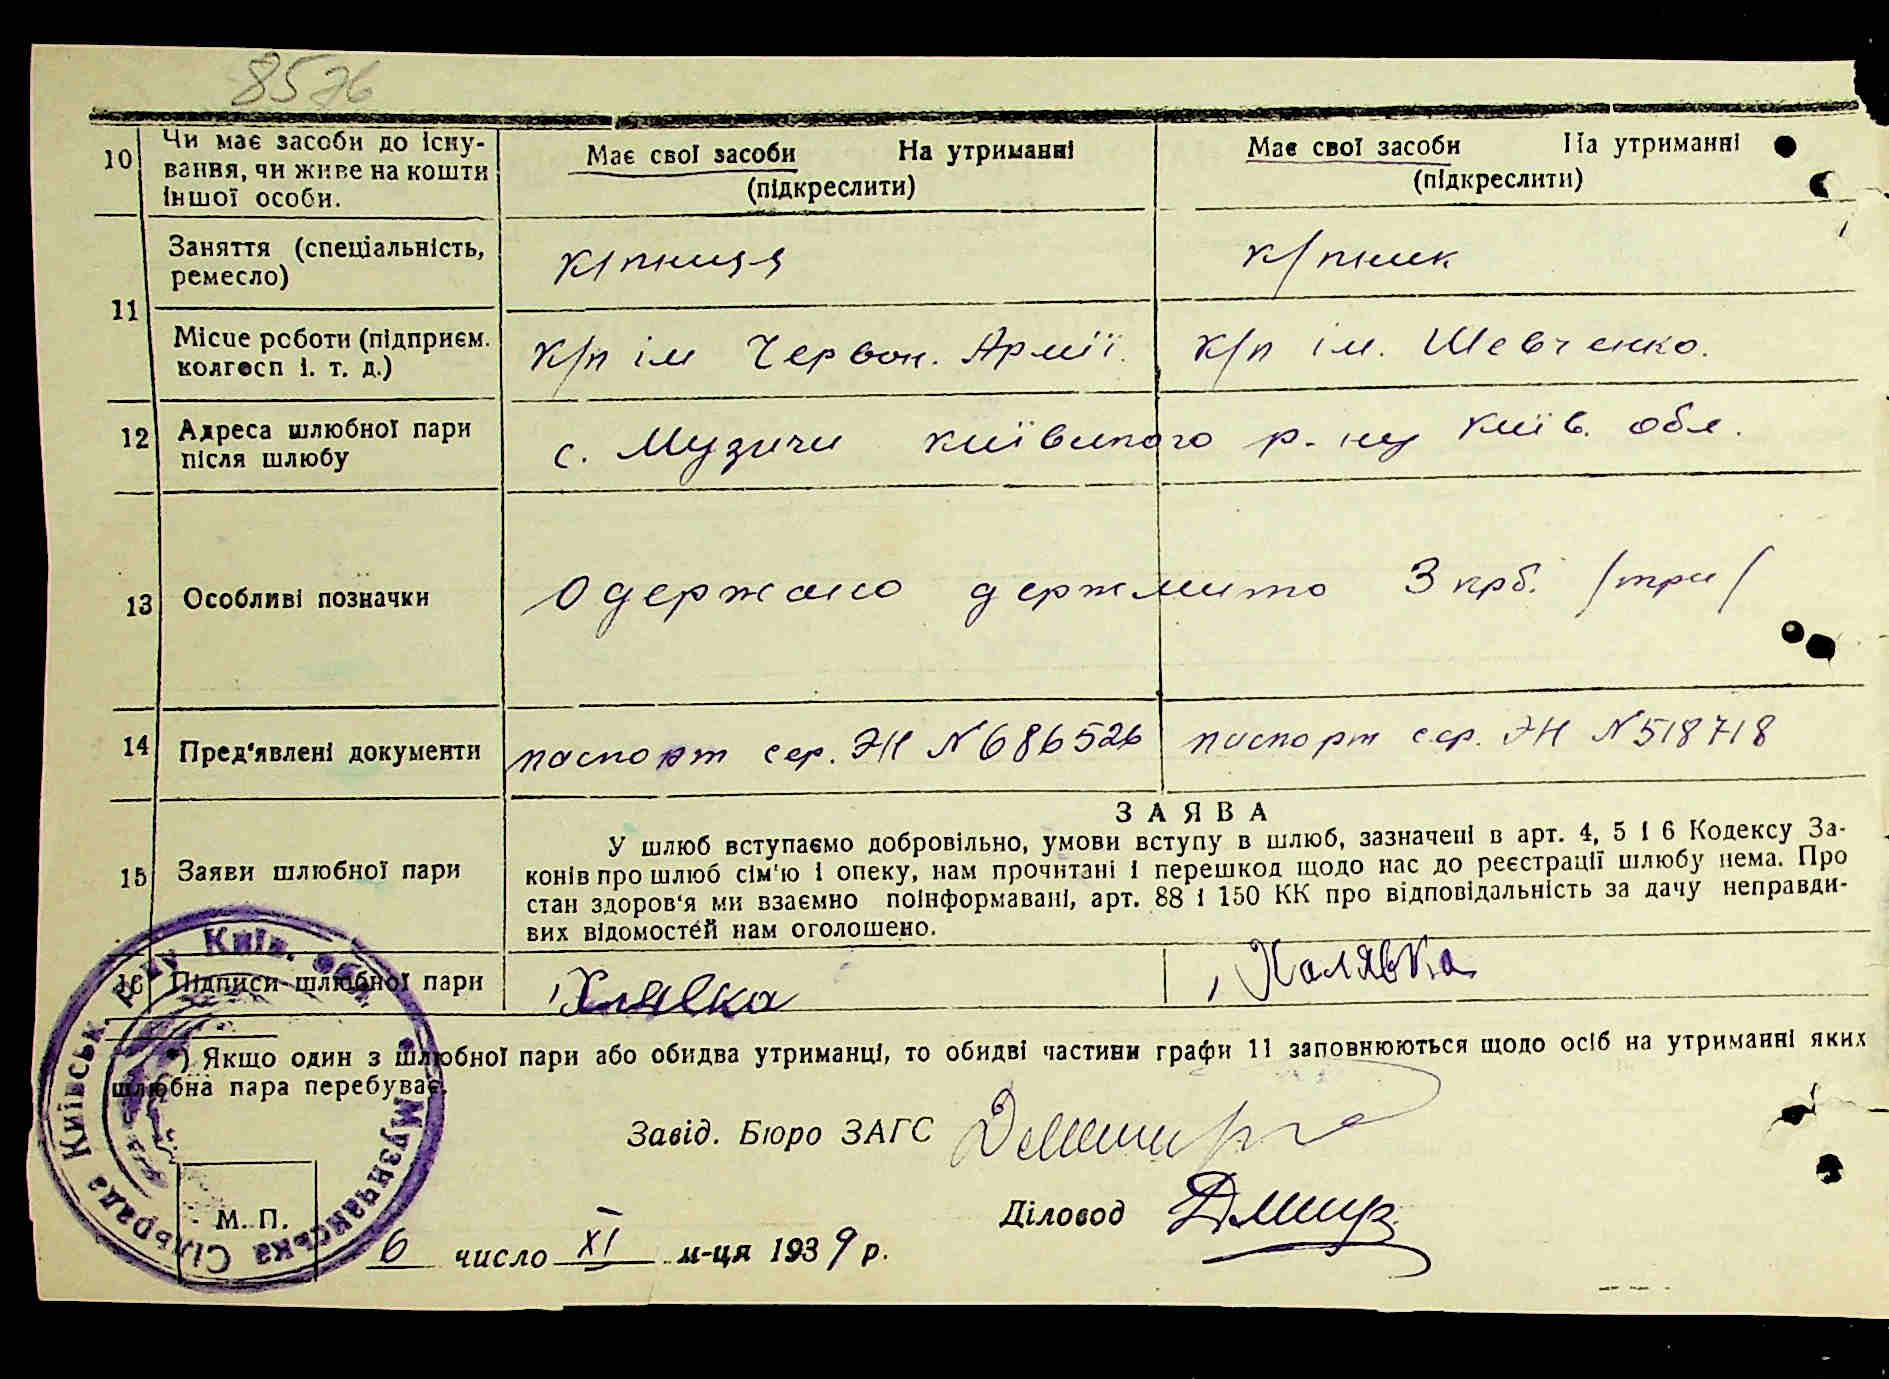 8576
10 Чи має засоби до існу- Має свої засоби На утриманні Має свої засоби На утриманні
вання, чи живе на кошти (підкреслити) (підкреслити)
іншої особи.
11 Заняття (спеціальність, к/пниця к/пник
ремесло)
Місце роботи (підприєм. к/п ім Червон. Армії. к/п ім. Шевченко.
колгосп і. т. д.)
12 Адреса шлюбної пари с. Музичи київського р-ну Київ. обл.
після шлюбу
13 Особливі позначки Одержано держмито 3 крб. /три/
14 Пред'явлені документи паспорт сер. ЭН №686526 паспорт сер. ЭН №518718
ЗАЯВА
15 Заяви шлюбної пари
У шлюб вступаємо добровільно, умови вступу в шлюб, зазначені в арт. 4, 5 і 6 Кодексу За-
конів про шлюб сім'ю і опеку, нам прочитані і перешкод щодо нас до реєстрації шлюбу нема. Про
стан здоров'я ми взаємно поінформавані, арт. 88 і 150 КК про відповідальність за дачу неправди-
вих відомостей нам оголошено.
16 Підписи шлюбної пари Халявка
*) Якщо один з шлюбної пари або обидва утриманці, то обидві частини графи 11 заповнюються щодо осіб на утриманні яких
шлюбна пара перебуває.
Завід. Бюро ЗАГС
Діловод
М. П.
6 число XI м-ця 1939 р.
Музичанська Сільрада Київськ. р-ну Київ. обл.